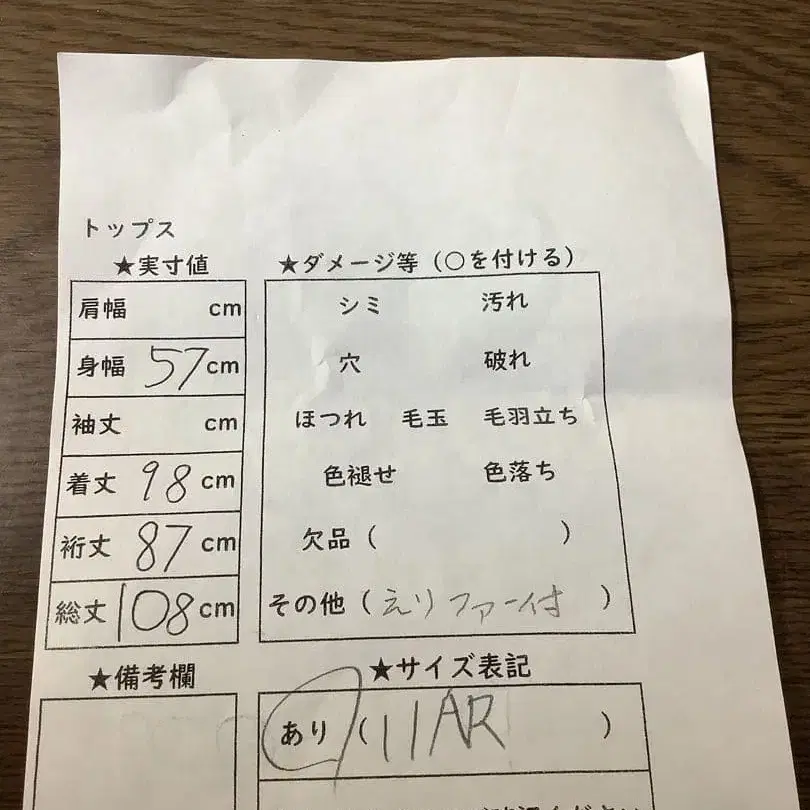 トップス
★実寸値
肩幅 cm
身幅 57cm
袖丈 cm
着丈 98 cm
裄丈 87 cm
総丈 108 cm
★ダメージ等（○を付ける）
シミ 汚れ
穴 破れ
ほつれ 毛玉 毛羽立ち
色褪せ 色落ち
欠品（ ）
その他（えりファー付）
★備考欄
★サイズ表記
あり（11AR ）
ください